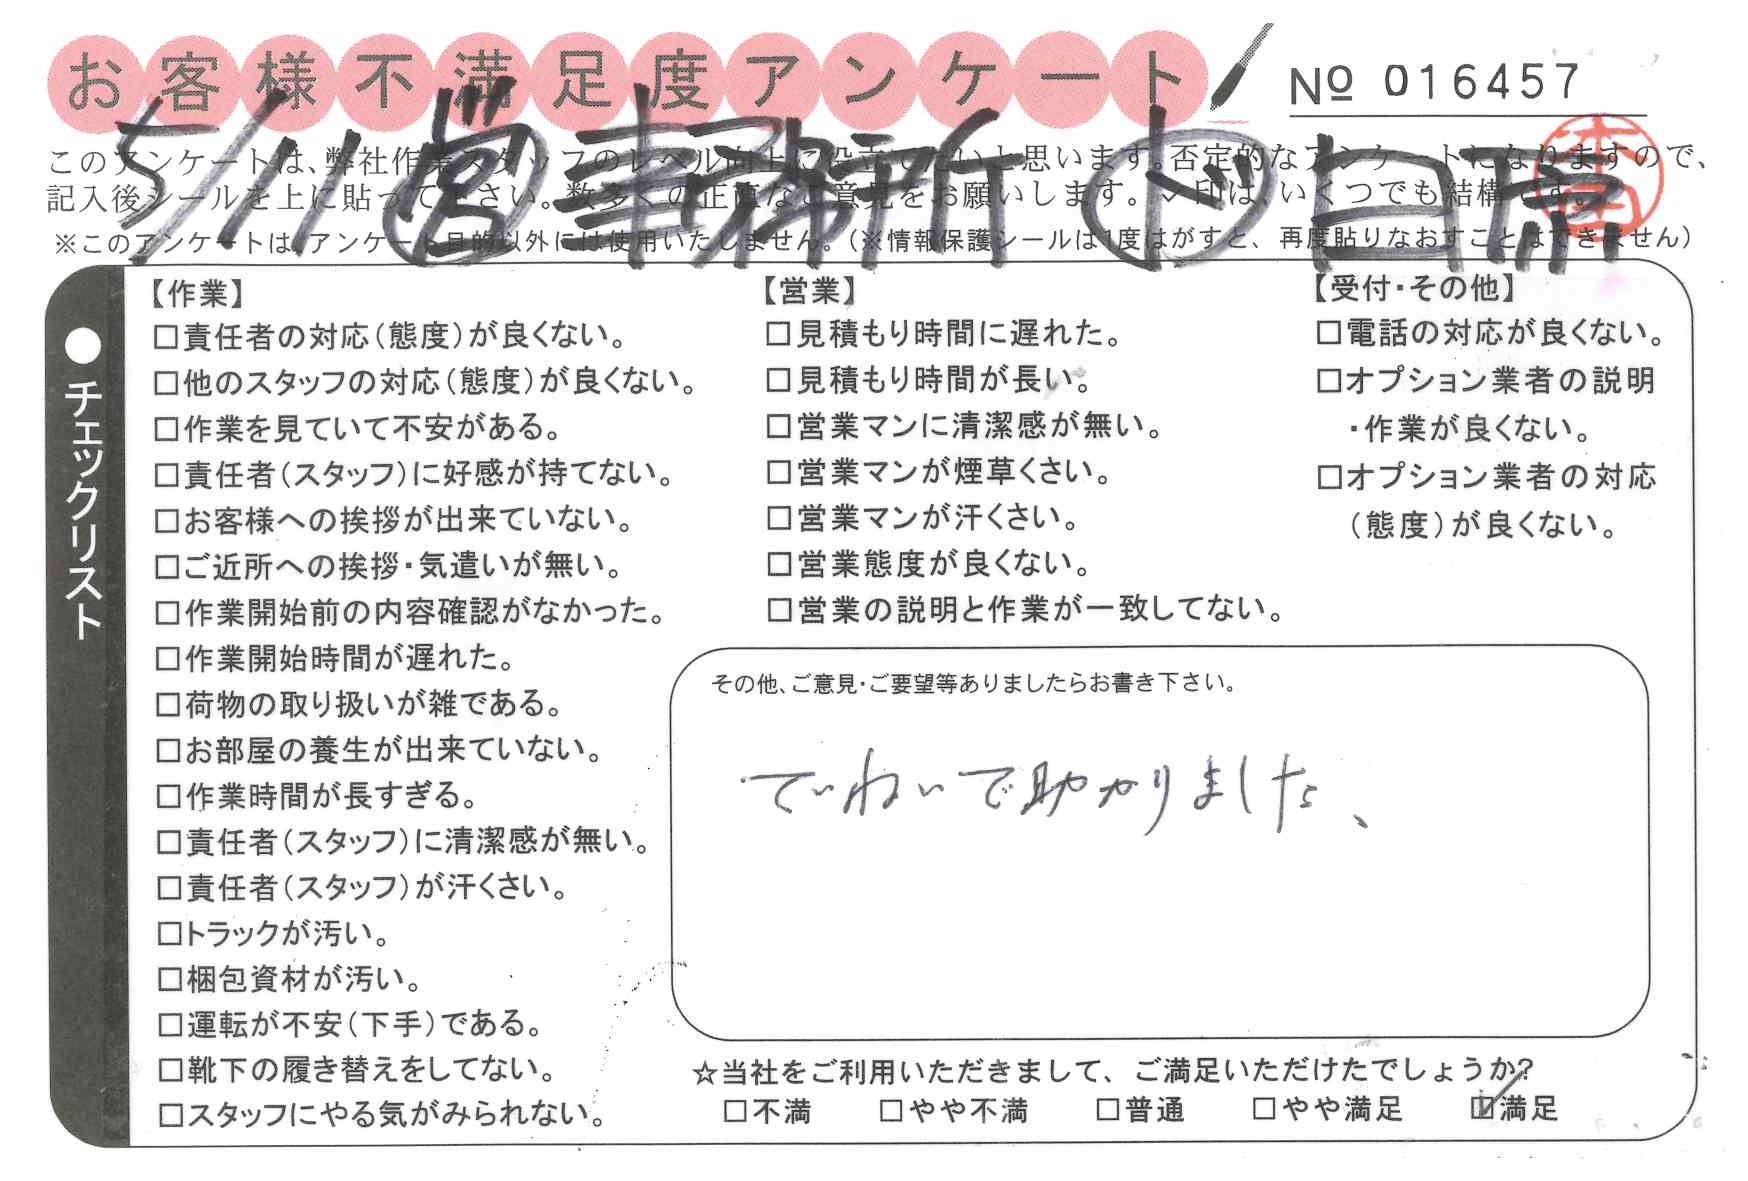 お客様不満足度アンケート
№ 016457
5/11 営 事務所 ド 白席
このアンケートは、弊社作業スタッフのレベル向上に役立てたいと思います。否定的なアンケートになりますので、
記入後シールを上に貼って下さい。数多くの正直なご意見をお願いします。✓印は、いくつでも結構です。
※このアンケートは、アンケート目的以外には使用いたしません。(※情報保護シールは1度はがすと、再度貼りなおすことはできません)
●チェックリスト
【作業】
□責任者の対応(態度)が良くない。
□他のスタッフの対応(態度)が良くない。
□作業を見ていて不安がある。
□責任者(スタッフ)に好感が持てない。
□お客様への挨拶が出来ていない。
□ご近所への挨拶・気遣いが無い。
□作業開始前の内容確認がなかった。
□作業開始時間が遅れた。
□荷物の取り扱いが雑である。
□お部屋の養生が出来ていない。
□作業時間が長すぎる。
□責任者(スタッフ)に清潔感が無い。
□責任者(スタッフ)が汗くさい。
□トラックが汚い。
□梱包資材が汚い。
□運転が不安(下手)である。
□靴下の履き替えをしてない。
□スタッフにやる気がみられない。
【営業】
□見積もり時間に遅れた。
□見積もり時間が長い。
□営業マンに清潔感が無い。
□営業マンが煙草くさい。
□営業マンが汗くさい。
□営業態度が良くない。
□営業の説明と作業が一致してない。
【受付・その他】
□電話の対応が良くない。
□オプション業者の説明
・作業が良くない。
□オプション業者の対応
(態度)が良くない。
その他、ご意見・ご要望等ありましたらお書き下さい。
ていねいで助かりました、
☆当社をご利用いただきまして、ご満足いただけたでしょうか?
□不満 □やや不満 □普通 □やや満足 ☑満足